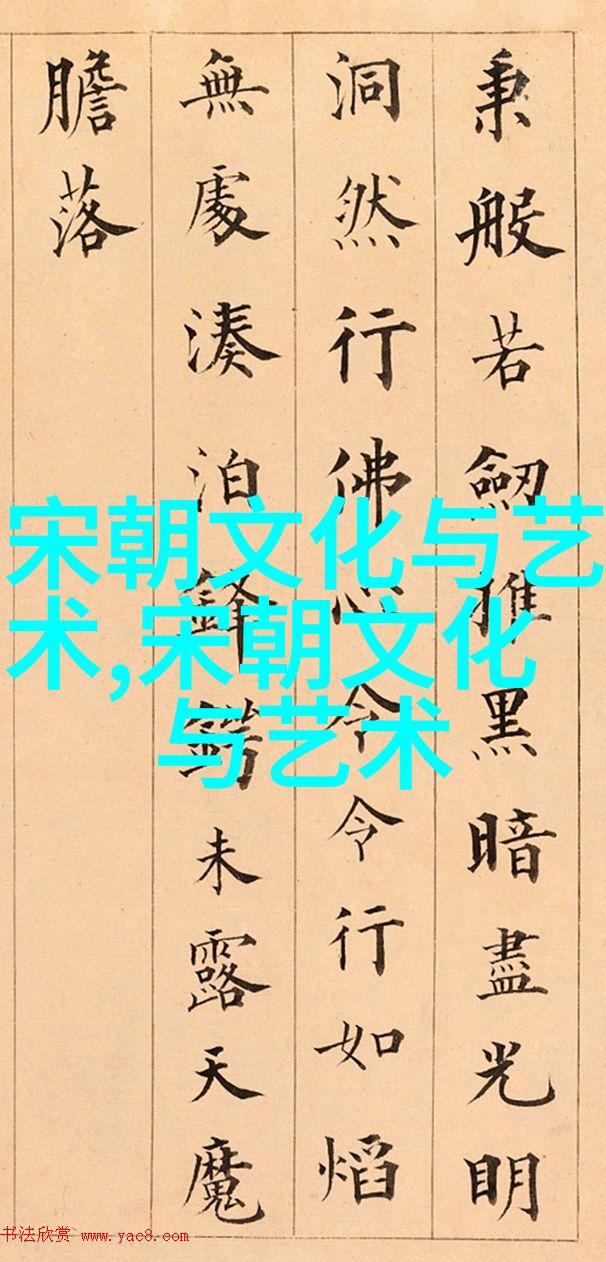 秉般若劒摧黑暗盡光明
洞然行佛心令令行如熖
無處湊泊鋒鍔未露天魔
膽落
宋朝文化与艺
术,宋朝文化
与艺术
书法欣赏 www.yac8.com